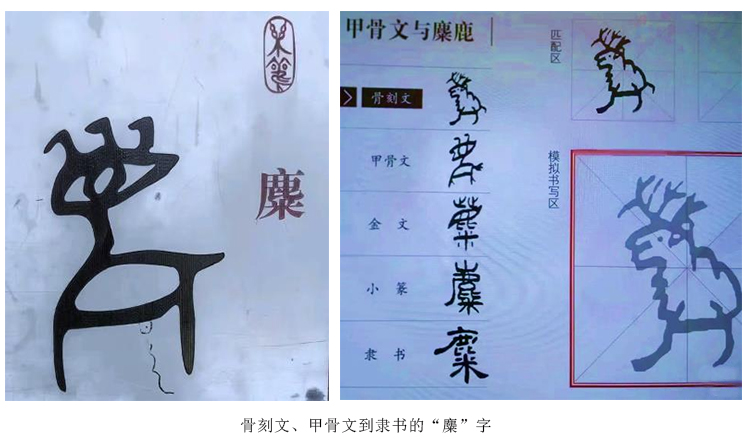 麋
甲骨文与麋鹿
骨刻文
甲骨文
金 文
小 篆
隶 书
匹配区
模拟书写区
骨刻文、甲骨文到隶书的“麋”字